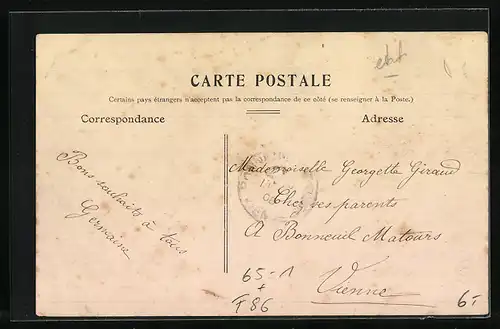 état
CARTE POSTALE
Certains pays étrangers n'acceptent pas la correspondance de ce côté (se renseigner à la Poste.)
Correspondance
Adresse
Bons souhaits à tous
Germaine
Mademoiselle Georgette Giraud
Chez ses parents
A Bonneuil Matours
Vienne
65-1
+
F86
6-